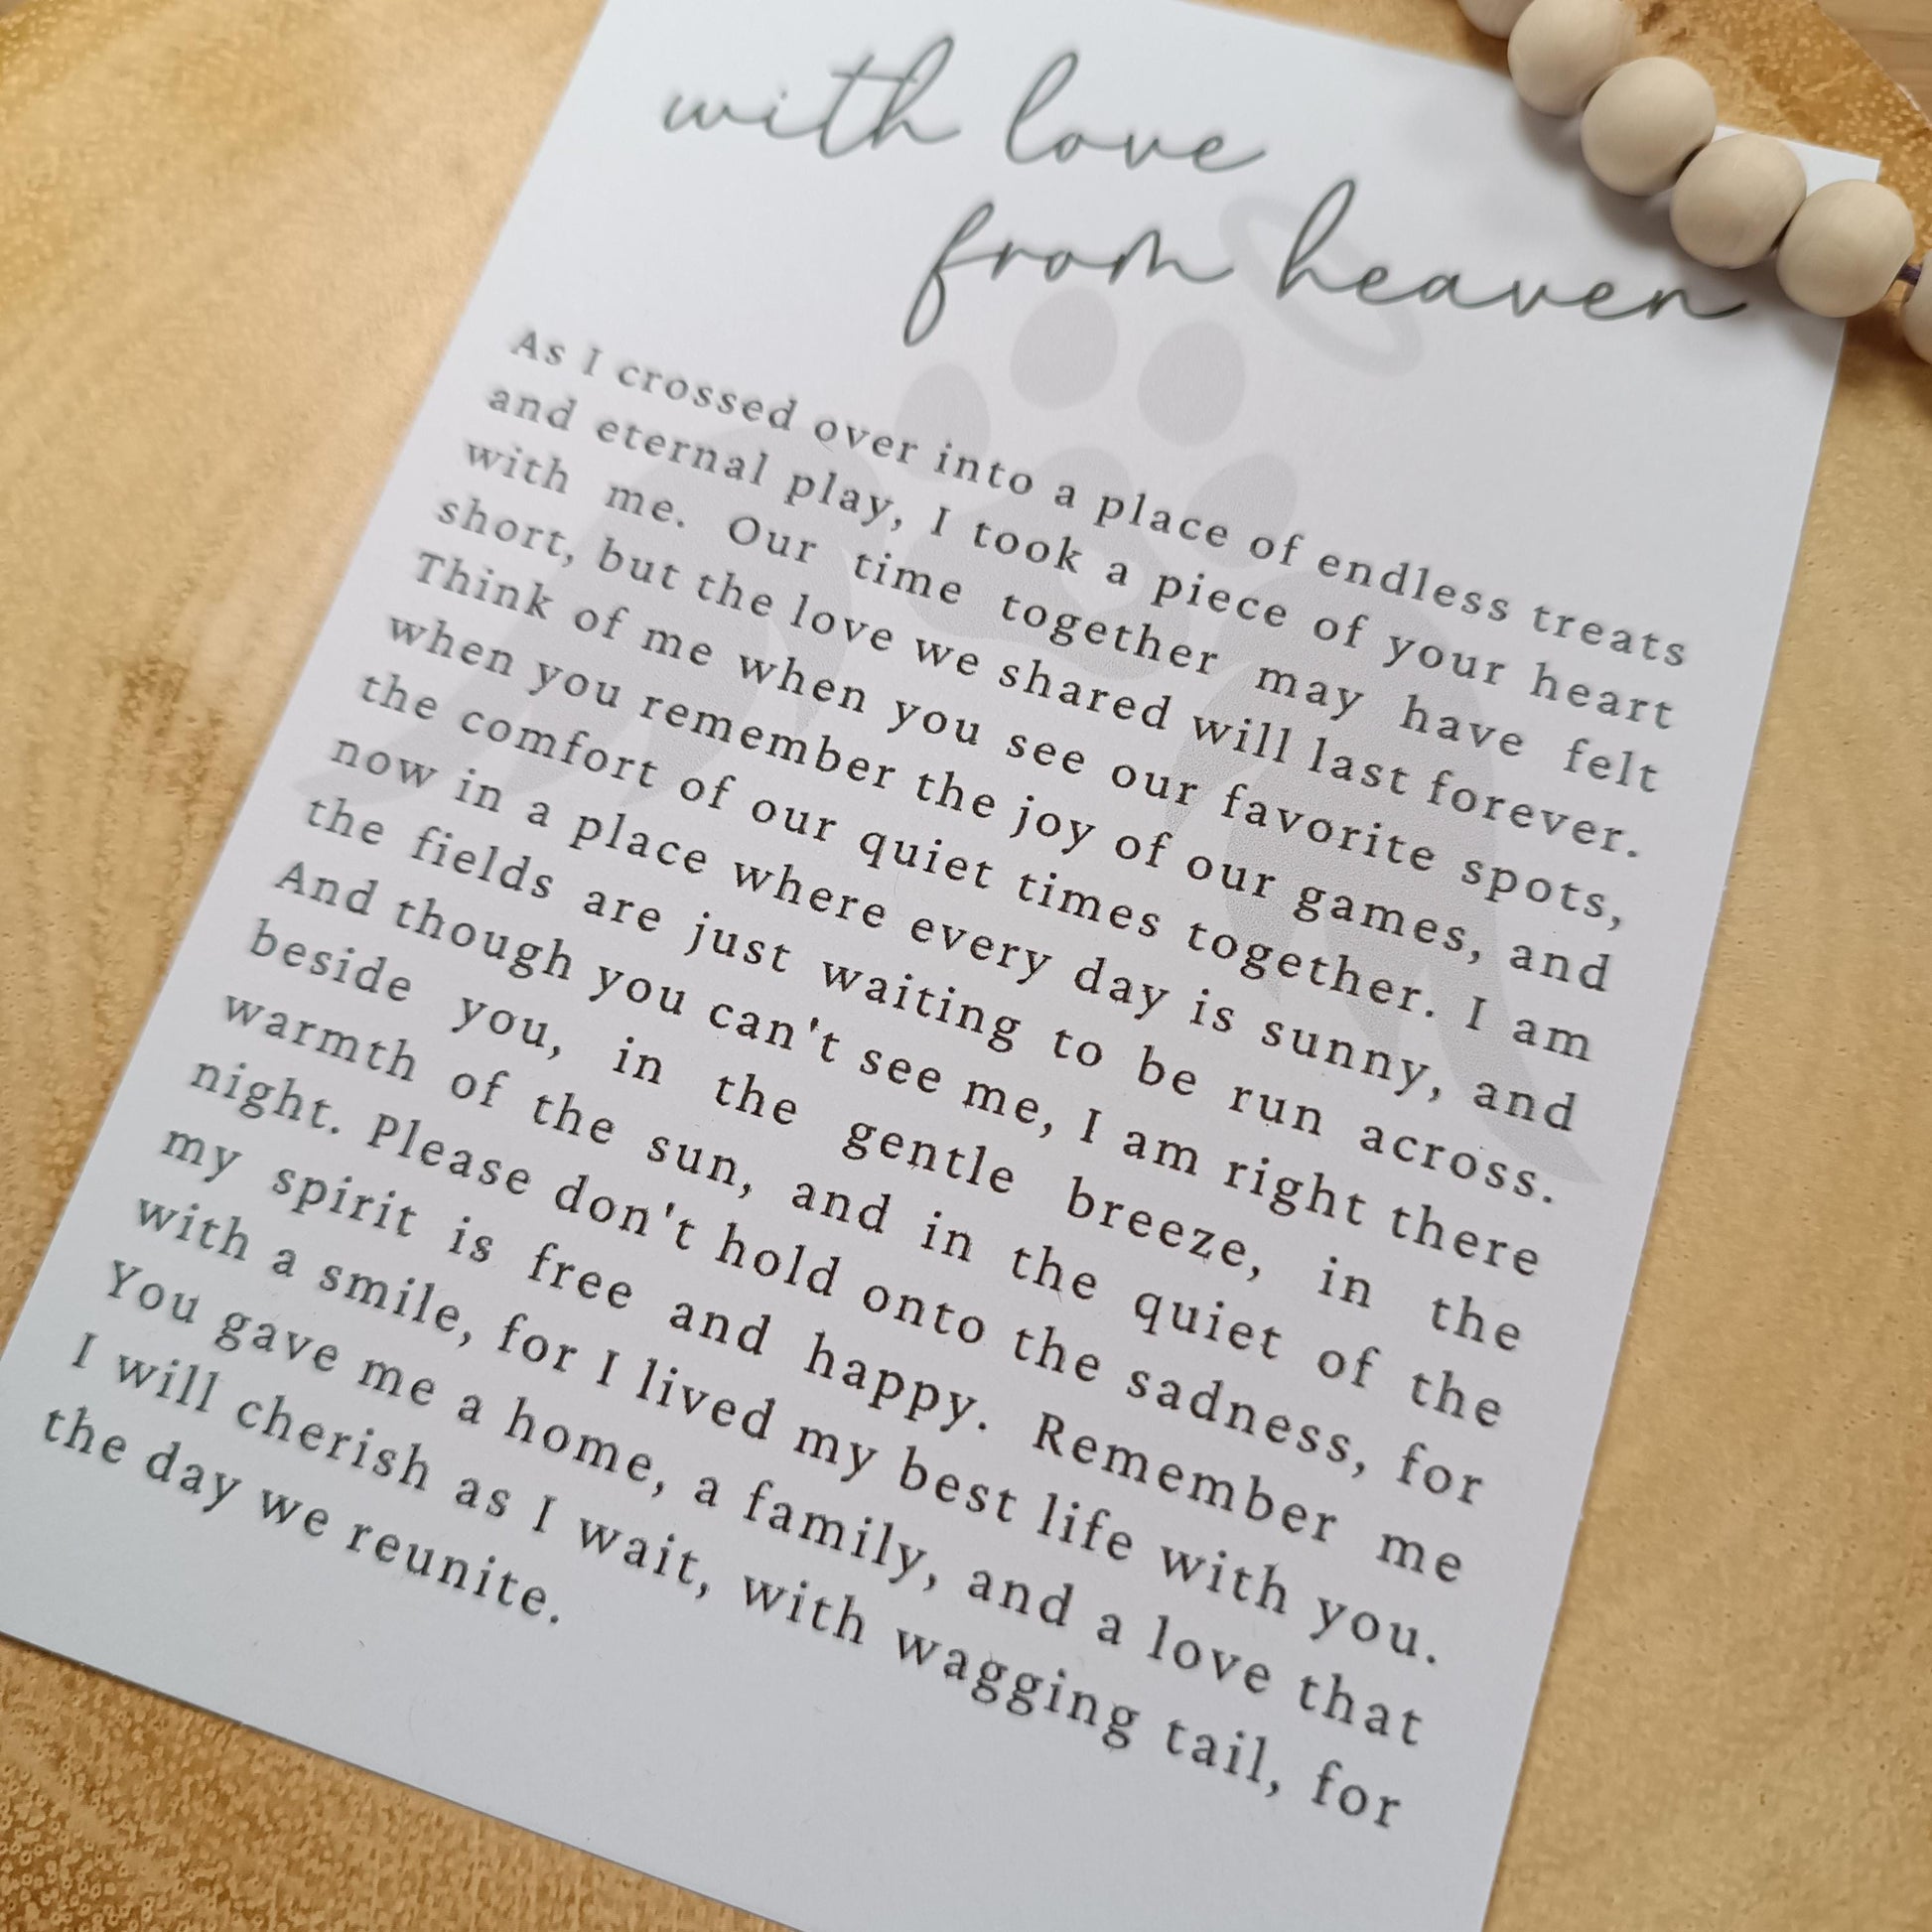 with love
from heaven
As I crossed over into a place of endless treats
and eternal play, I took a piece of your heart
with me. Our time together may have felt
short, but the love we shared will last forever.
Think of me when you see our favorite spots,
when you remember the joy of our games, and
the comfort of our quiet times together. I am
now in a place where every day is sunny, and
the fields are just waiting to be run across.
And though you can't see me, I am right there
beside you, in the gentle breeze, in the
warmth of the sun, and in the quiet of the
night. Please don't hold onto the sadness, for
my spirit is free and happy. Remember me
with a smile, for I lived my best life with you.
You gave me a home, a family, and a love that
I will cherish as I wait, with wagging tail, for
the day we reunite.